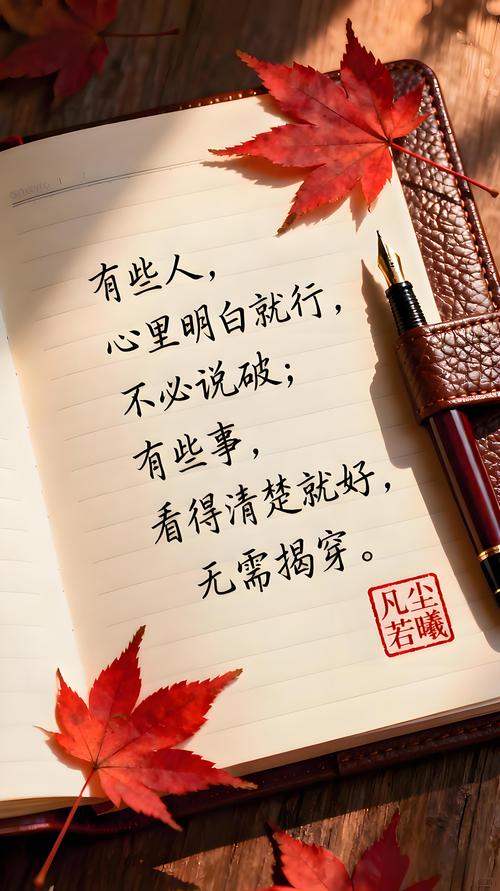 有些人，
心里明白就行，
不必说破；
有些事，
看得清楚就好，
无需揭穿。
凡尘
若曦